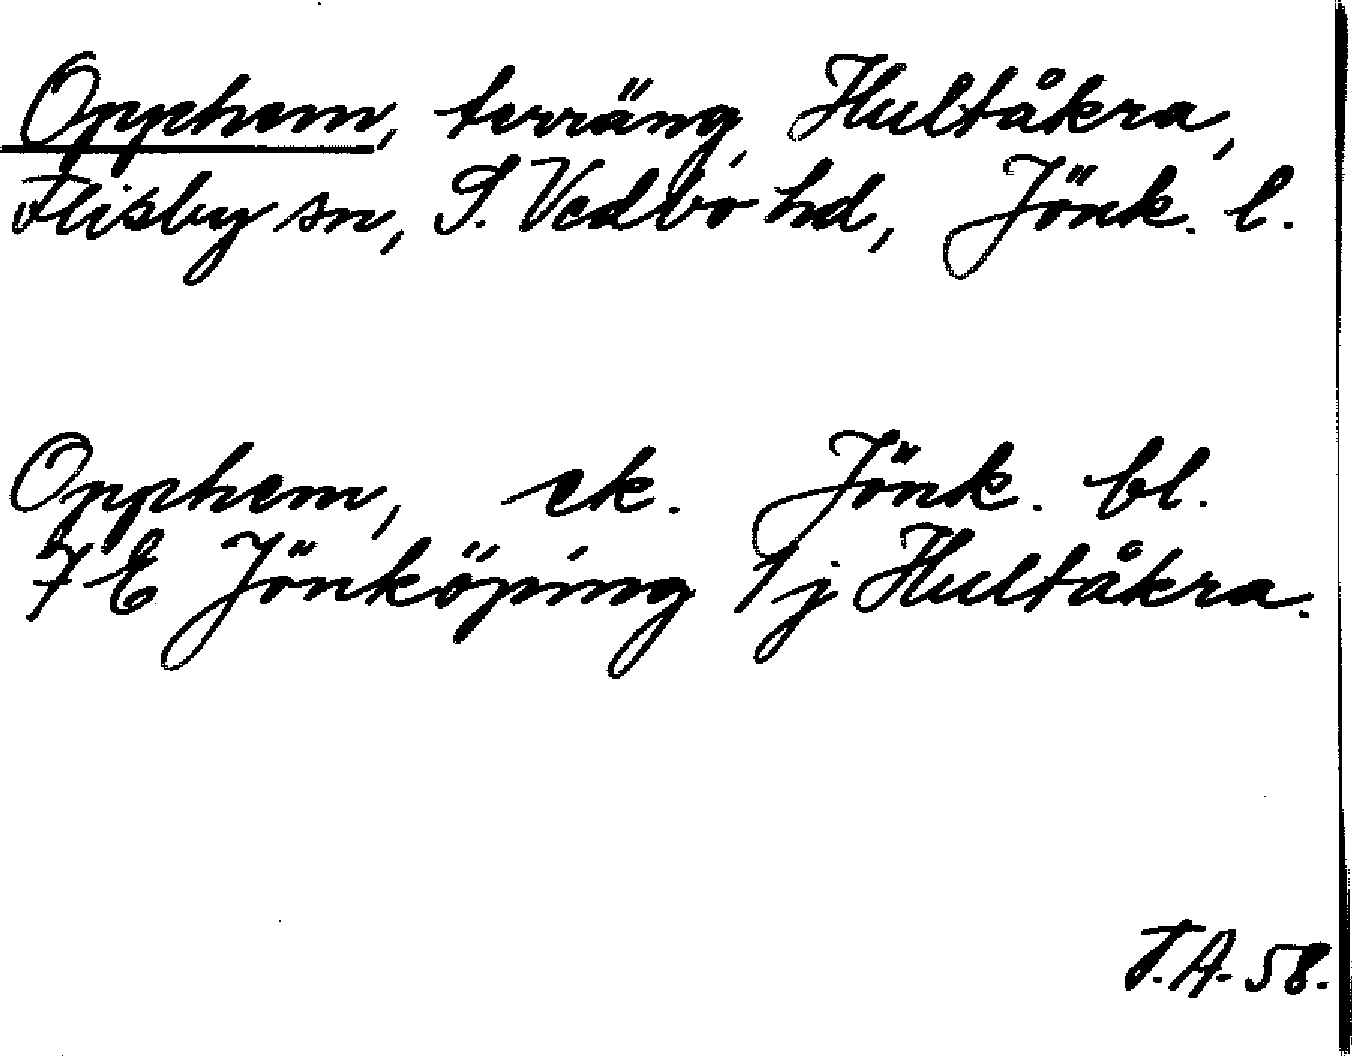 Opphem, terräng, Hultåkra,
Flisby sn, S. Vedbo hd, Jönk. l.
Opphem, ek. Jönk. bl.
7 E Jönköping 1j Hultåkra.
T.A. 58.